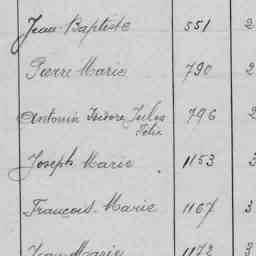 Jean-Baptiste 551 2
Pierre Marie 790 2
Antonin Isidore Jules 796 2
Félix
Joseph Marie 1153 3
François-Marie 1167 3
Jean Marie 1172 3